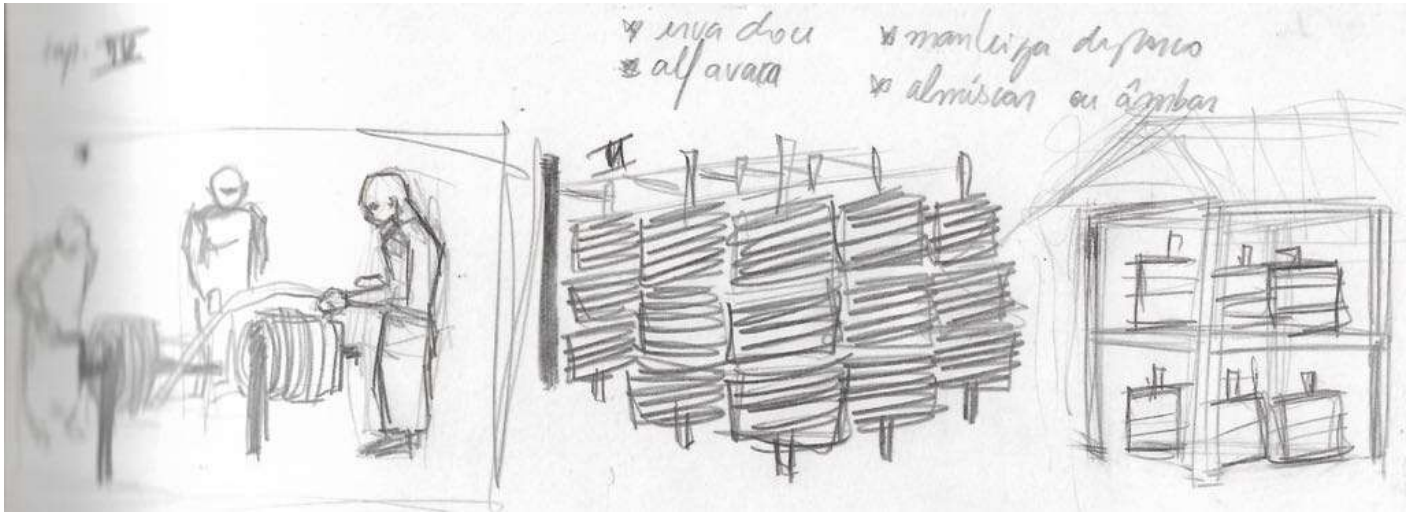 cap. IV
* erva doce
* alfavaca
* manteiga de porco
* almíscar ou âmbar
II